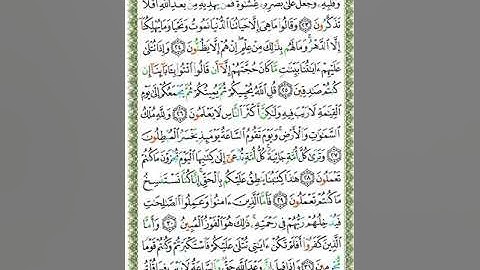 وقلبه وجعل على بصره غشاوة فمن يهديه من بعد الله أفلا
تذكرون ٢٣ وقالوا ما هي إلا حياتنا الدنيا نموت ونحيا وما يهلكنا
إلا الدهر وما لهم بذلك من علم إن هم إلا يظنون ٢٤ وإذا تتلى
عليهم ءاياتنا بينات ما كان حجتهم إلا أن قالوا ائتوا بـٔابائنا إن
كنتم صادقين ٢٥ قل الله يحييكم ثم يميتكم ثم يجمعكم إلى يوم
القيامة لا ريب فيه ولكن أكثر الناس لا يعلمون ٢٦ ولله ملك
السماوات والأرض ويوم تقوم الساعة يومئذ يخسر المبطلون
٢٧ وترى كل أمة جاثية كل أمة تدعى إلى كتابها اليوم تجزون ما كنتم
تعملون ٢٨ هذا كتابنا ينطق عليكم بالحق إنا كنا نستنسخ
ما كنتم تعملون ٢٩ فأما الذين ءامنوا وعملوا الصالحات
فيدخلهم ربهم في رحمته ذلك هو الفوز المبين ٣٠ وأما
الذين كفروا أفلم تكن ءاياتي تتلى عليكم فاستكبرتم وكنتم قوما
مجرمين ٣١ وإذا قيل إن وعد الله حق والساعة لا ريب فيها قلتم